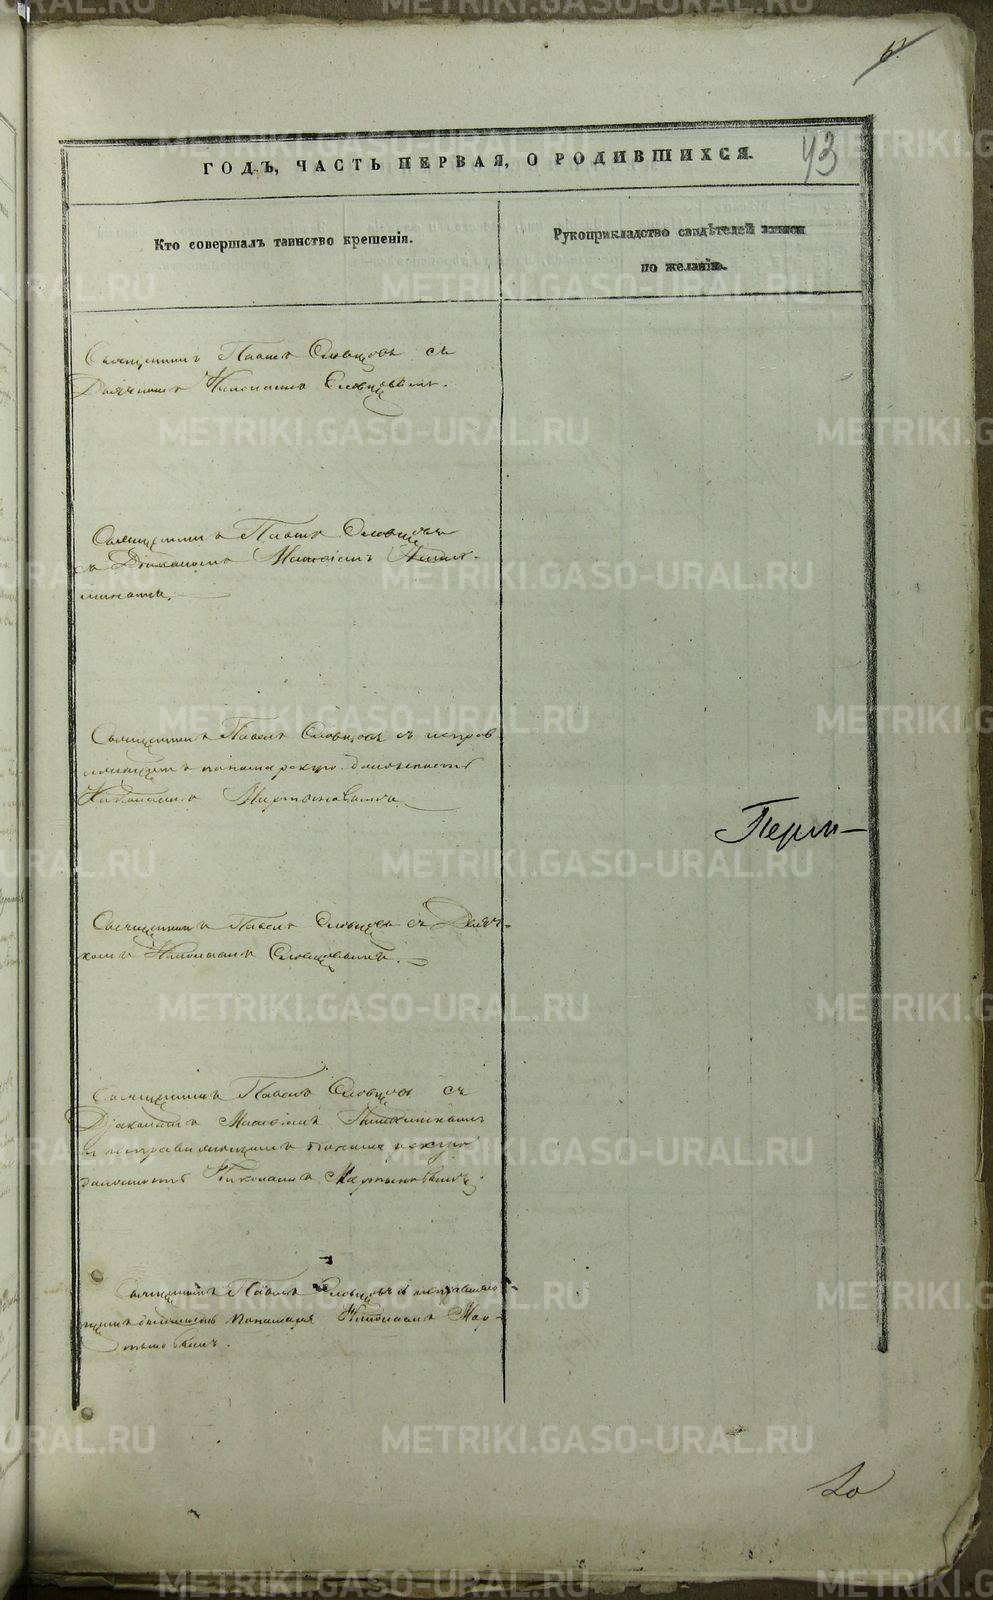 6.
43
ГОДЪ, ЧАСТЬ ПЕРВАЯ, О РОДИВШИХСЯ.
Кто совершалъ таинство крещенія.
Рукоприкладство свидѣтелей записи
по желанію.
Священникъ Павелъ Словцовъ съ
Дьячкомъ Николаемъ Словцовымъ.
Священникъ Павелъ Словцовъ
съ Діакономъ
Священникъ Павелъ Словцовъ съ исправ
ляющимъ пономарскую должность
Николаемъ Мартыновымъ
Перм—
Священникъ Павелъ Словцовъ съ Дьяч-
комъ Николаемъ Словцовымъ.
Священникъ Павелъ Словцовъ съ
Діакономъ
и исправляющимъ пономарскую
должность Николаемъ Мартыновымъ
Священникъ Павелъ Словцовъ съ исправляю
щимъ должность пономаря Николаемъ Мар-
тыновымъ.
METRIKI.GASO-URAL.RU